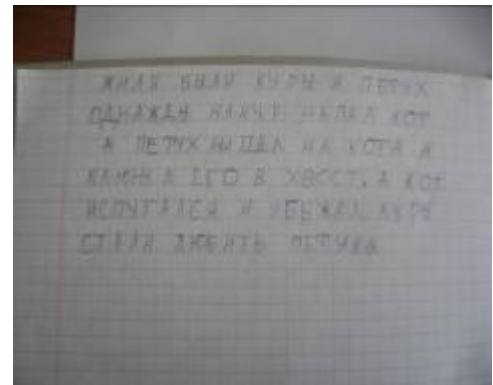 ЖИЛИ БЫЛИ КУРЫ И ПЕТУХ
ОДНАЖДЫ НАКУР НАПАЛ КОТ
А ПЕТУХ НАПАЛ НА КОТА И
ЕГО В ХВОСТ. А КОТ
ИСПУГАЛСЯ И УБЕЖАЛ КУРЫ
СТАЛИ ЛЮБИТЬ ПЕТУХА